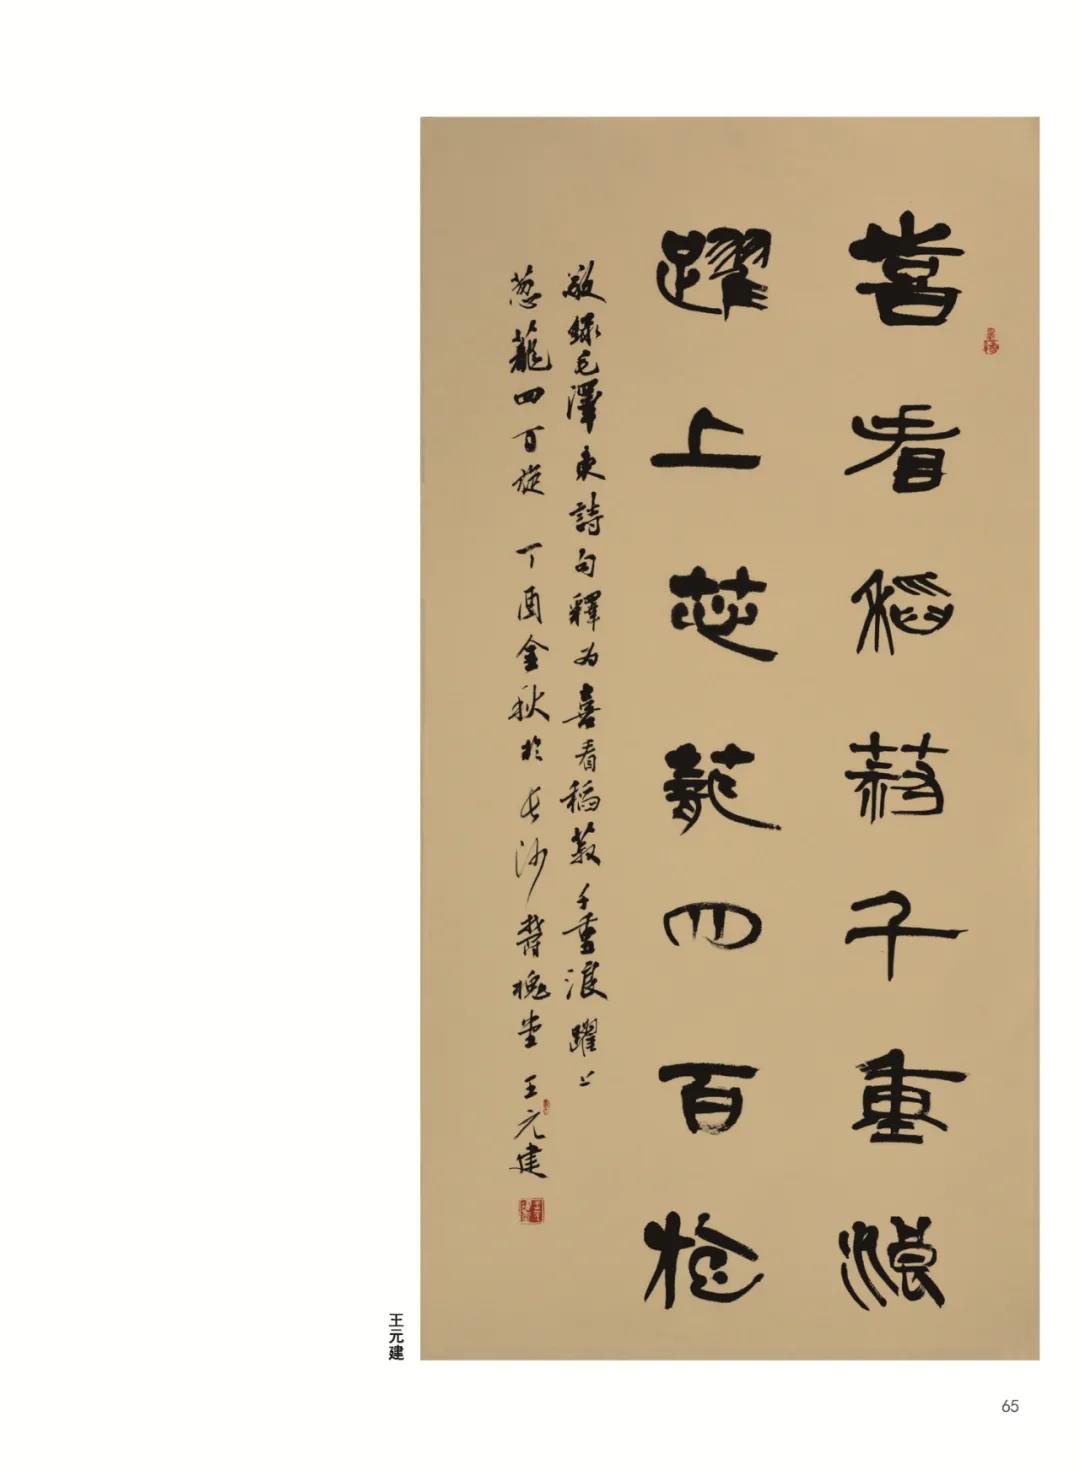 喜看稻菽千重浪
躍上葱蘢四百旋
敬錄毛澤東詩句釋为喜看稻菽千重浪躍上
葱蘢四百旋 丁酉金秋於长沙槐堂 王元建
王元建
65